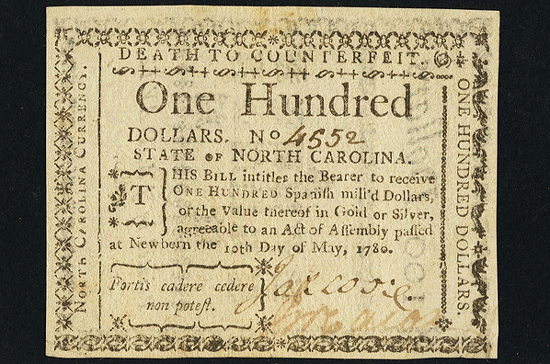 DEATH TO COUNTERFEIT.
One Hundred
DOLLARS. No 4552
STATE OF NORTH CAROLINA.
THIS BILL intitles the Bearer to receive
ONE HUNDRED Spanish mill'd Dollars,
or the Value thereof in Gold or Silver,
agreeable to an Act of Assembly passed
at Newbern the 10th Day of May, 1780.
Fortis cadere cedere
non potest.
NORTH CAROLINA CURRENCY.
ONE HUNDRED DOLLARS.